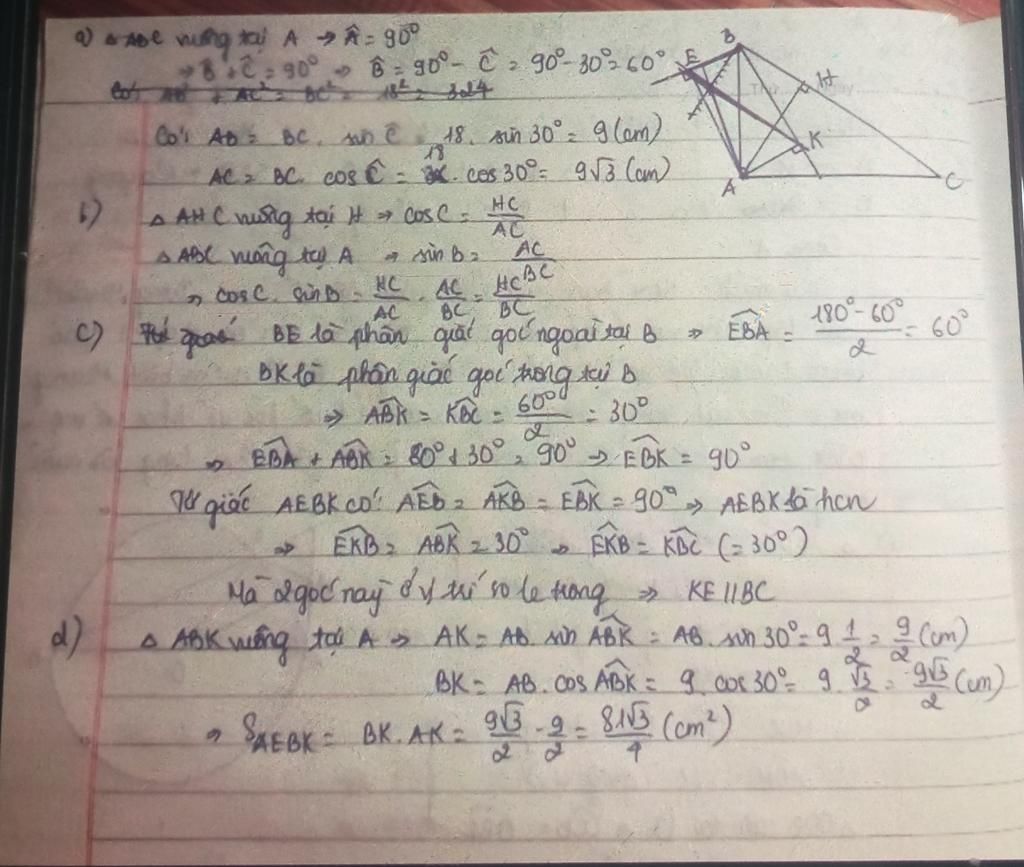 a) △ABC vuông tại A → Â = 90°
⇒ B̂ + Ĉ = 90° ⇒ B̂ = 90° - Ĉ = 90° - 30° = 60°
Có: AB² + AC² = BC² = 18² = 324
Có: AB = BC. sin C = 18. sin 30° = 9 (cm)
AC = BC. cos Ĉ = 18. cos 30° = 9√3 (cm)
b) △AHC vuông tại H ⇒ cos C = HC/AC
△ABC vuông tại A ⇒ sin B = AC/BC
⇒ cos C. sin B = HC/AC . AC/BC = HC/BC
c) BE là phân giác góc ngoài tại B ⇒ EBA = (180° - 60°)/2 = 60°
BK là phân giác góc trong tại B
⇒ ABK = KBC = 60°/2 = 30°
⇒ EBA + ABK = 60° + 30° = 90° ⇒ EBK = 90°
Tứ giác AEBK có: AEB = AKB = EBK = 90° ⇒ AEBK là hcn
⇒ EKB = ABK = 30° ⇒ EKB = KBC (= 30°)
Mà 2 góc này ở vị trí so le trong ⇒ KE // BC
d) △ABK vuông tại A ⇒ AK = AB. sin ABK = AB. sin 30° = 9 1/2 = 9/2 (cm)
BK = AB. cos ABK = 9. cos 30° = 9. √3/2 = 9√3/2 (cm)
⇒ S AEBK = BK. AK = 9√3/2 . 9/2 = 81√3/4 (cm²)
B
E
H
K
A
C